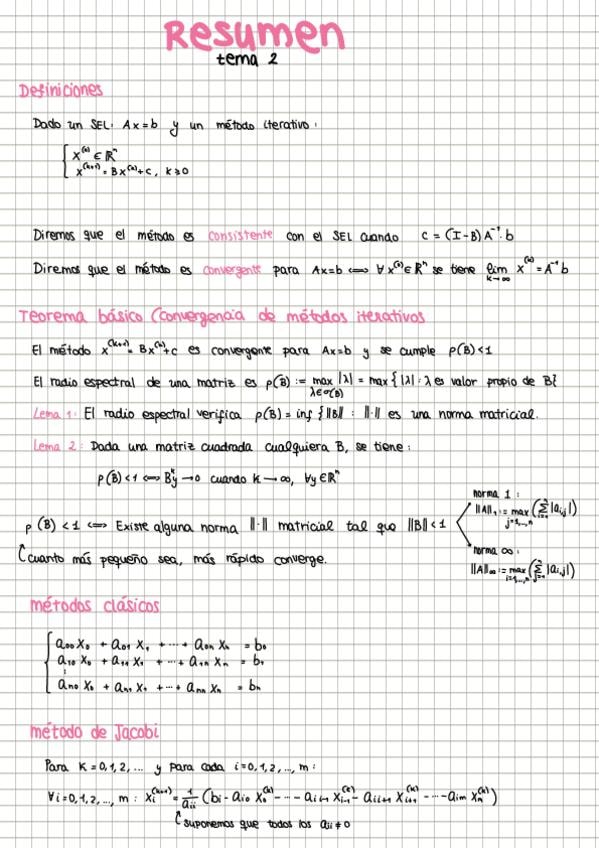 Resumen
tema 2
Definiciones
Dado un SEL: Ax=b y un método iterativo:
{ x⁽⁰⁾ ∈ ℝⁿ
x⁽ᵏ⁺¹⁾ = Bx⁽ᵏ⁾+c, k≥0
Diremos que el método es consistente con el SEL cuando c = (I-B)A⁻¹·b
Diremos que el método es convergente para Ax=b ⟺ ∀x⁽⁰⁾∈ℝⁿ se tiene lim k→∞ x⁽ᵏ⁾=A⁻¹b
Teorema básico (convergencia de métodos iterativos
El método x⁽ᵏ⁺¹⁾=Bx⁽ᵏ⁾+c es convergente para Ax=b y se cumple ρ(B)<1
El radio espectral de una matriz es ρ(B) := max λ∈σ(B) |λ| = max{|λ|: λ es valor propio de B}
Lema 1: El radio espectral verifica ρ(B) = inf {‖B‖ : ‖·‖ es una norma matricial.
Lema 2: Dada una matriz cuadrada cualquiera B, se tiene:
ρ(B)<1 ⟺ Bᵏy→0 cuando k→∞, ∀y∈ℝⁿ
norma 1:
‖A‖₁ := max j=1,...,n (Σ i=1 n |aᵢ,ⱼ|)
ρ(B)<1 ⟺ Existe alguna norma ‖·‖ matricial tal que ‖B‖<1
norma ∞:
‖A‖∞ := max i=1,...,n (Σ j=1 n |aᵢ,ⱼ|)
cuanto más pequeño sea, más rápido converge.
métodos clásicos
{ a₀₀x₀ + a₀₁x₁ + ··· + a₀ₙxₙ = b₀
a₁₀x₀ + a₁₁x₁ + ··· + a₁ₙxₙ = b₁
⋮
aₙ₀x₀ + aₙ₁x₁ + ··· + aₙₙxₙ = bₙ
método de Jacobi
Para K=0,1,2,... y para cada i=0,1,2,...,m:
∀i=0,1,2,...,m: xᵢ⁽ᵏ⁺¹⁾ = 1/aᵢᵢ (bᵢ - aᵢ₀x₀⁽ᵏ⁾ - ··· - aᵢᵢ₋₁xᵢ₋₁⁽ᵏ⁾ - aᵢᵢ₊₁xᵢ₊₁⁽ᵏ⁾ - ··· - aᵢₘxₙ⁽ᵏ⁾)
suponemos que todos los aᵢᵢ≠0